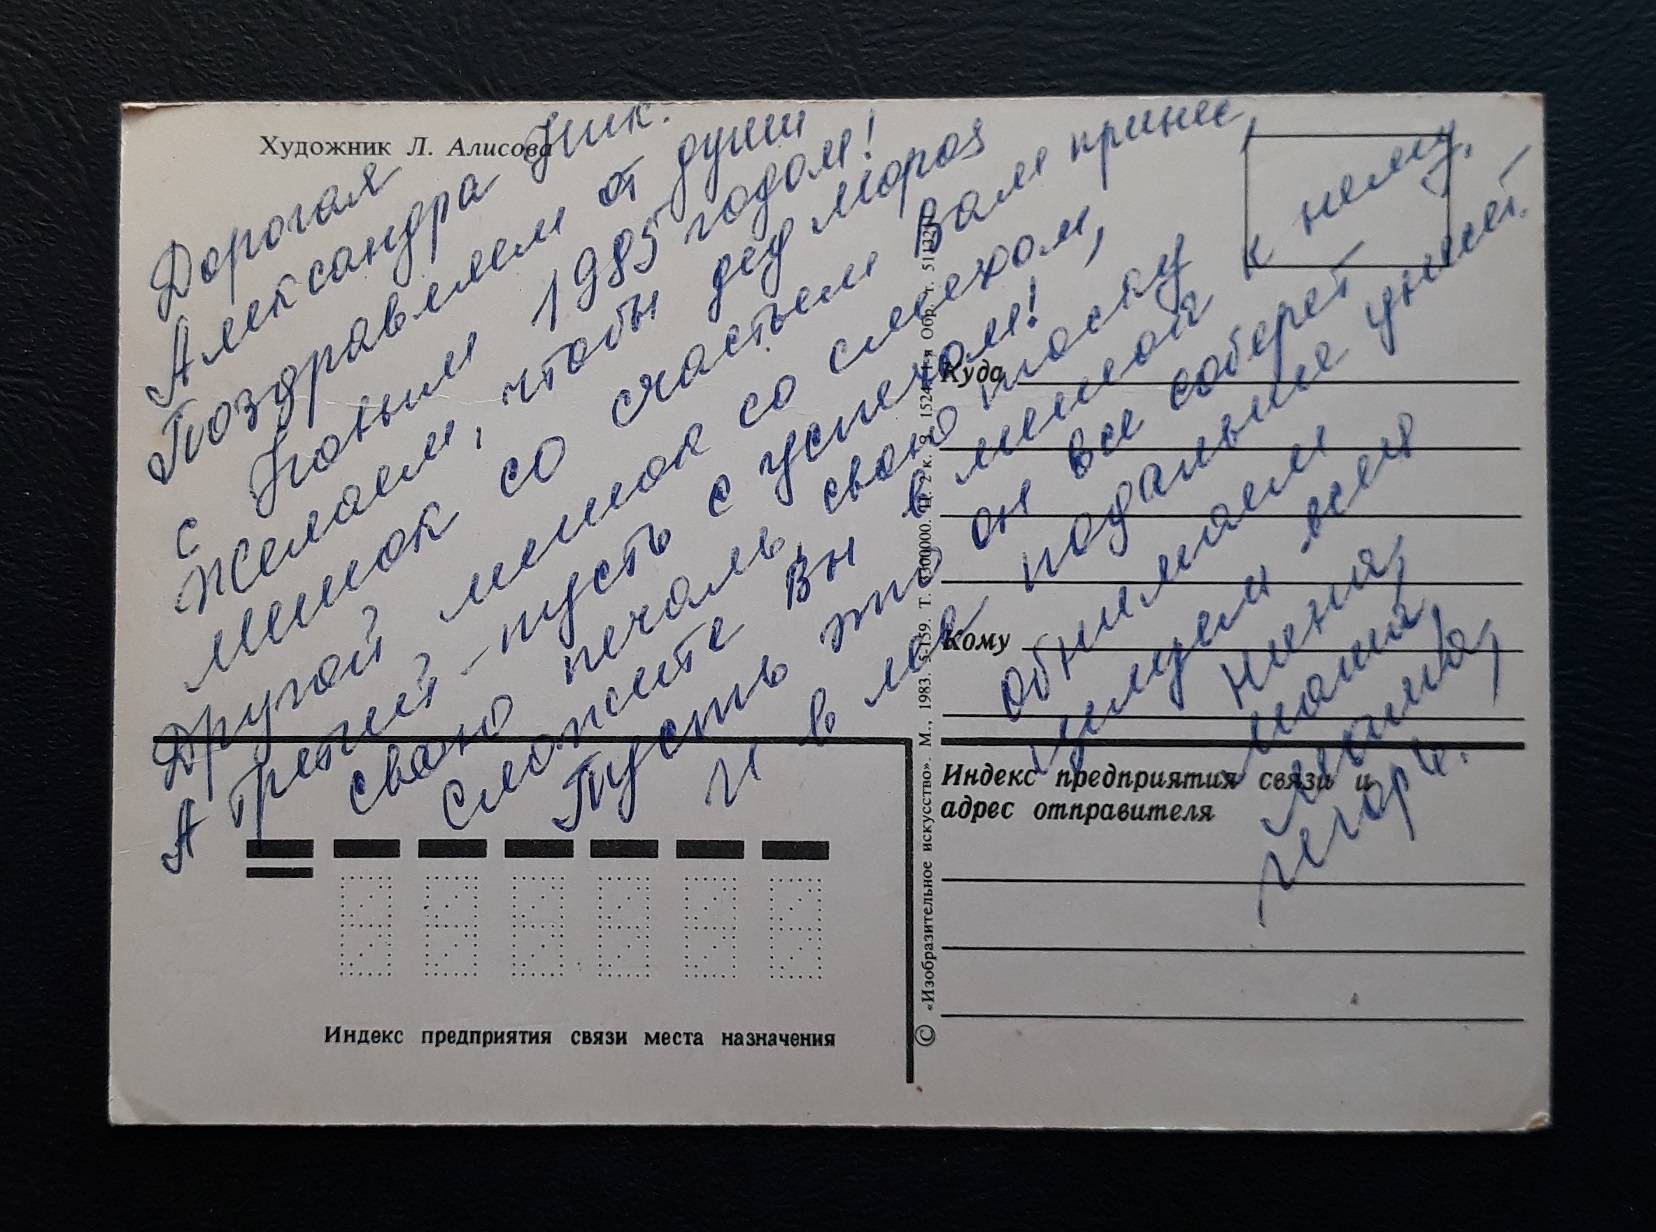 Художник Л. Алисова
Дорогая
Александра Ник.
Поздравляем от души
с Новым 1985 годом!
Желаем, чтобы дед мороз
мешок со счастьем Вам принес,
Другой мешок со смехом,
А третий - пусть с успехом!
свою печаль, свою тоску
сложите Вы в мешок к нему.
Пусть это он все соберет
И в лес подальше унесет.
Обнимаем
целуем всем
Нина,
Маша,
Игорь.
Куда
Кому
Индекс предприятия связи и
адрес отправителя
Индекс предприятия связи места назначения
© «Изобразительное искусство». М., 1983. 5-159. Т. 2 к.